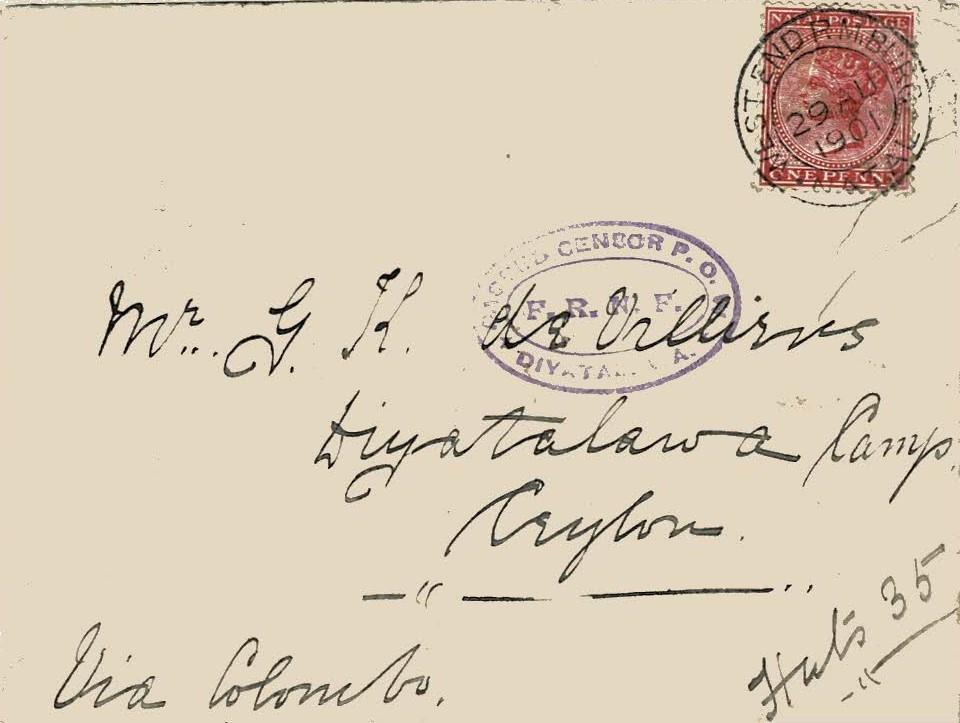 NATAL POSTAGE
WEST END P.M.BURG
29 AU
1901
NATAL
ONE PENNY
CENSOR P.O.
F. R. N. F.
Mr. G. K. de Villiers
Diyatalawa Camp.
Ceylon.
Via Colombo.
Huts 35